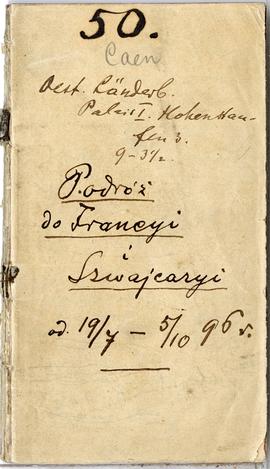 50.
Caen
Oest. Länderb.
Palais I. Hohenstau-
fen 3.
9-3½.
Podróż
do Francyi
i
Szwajcaryi
od 19/7 – 5/10 96 r.